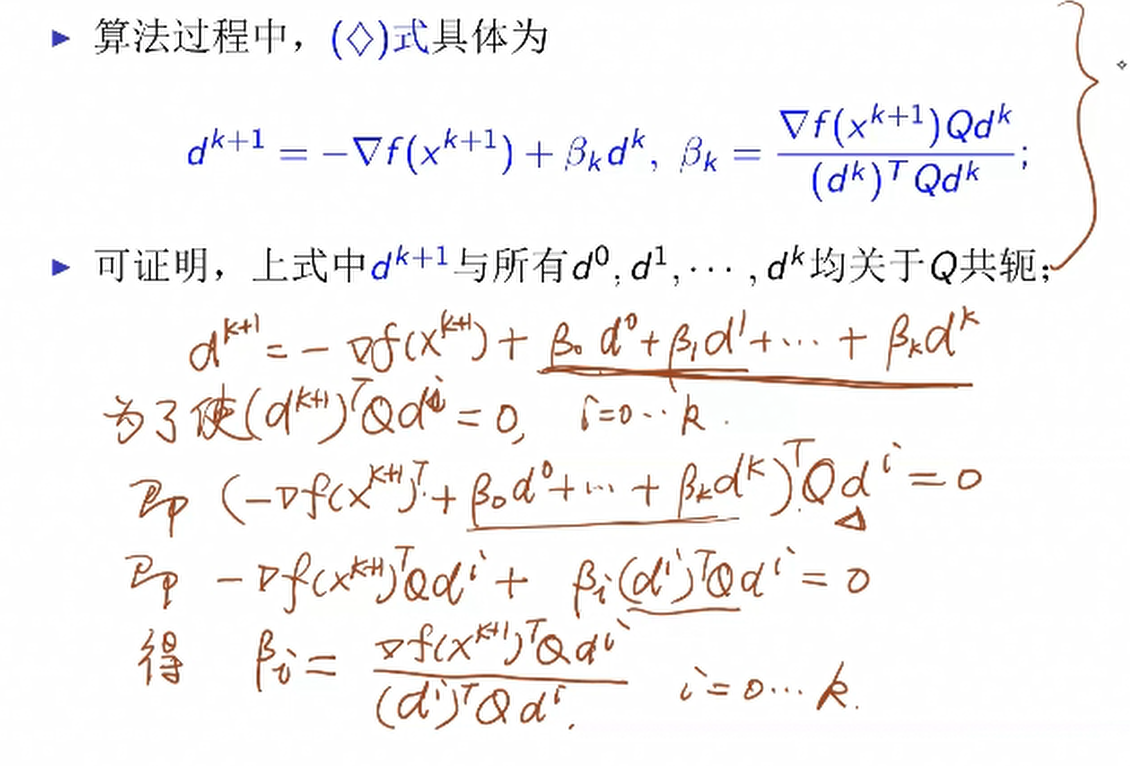 ▶ 算法过程中，(◇)式具体为
d^{k+1} = −∇f(x^{k+1}) + β_k d^k, β_k = \frac{∇f(x^{k+1})Qd^k}{(d^k)^T Qd^k};
▶ 可证明，上式中d^{k+1}与所有d^0, d^1, ⋯, d^k均关于Q共轭;
d^{k+1} = − ∇f(x^{k+1}) + β_0 d^0 + β_1 d^1 + ⋯ + β_k d^k
为了使(d^{k+1})^T Qd^i = 0, i=0⋯k.
即 (−∇f(x^{k+1})^T + β_0 d^0 + ⋯ + β_k d^k)^T Qd^i = 0
即 −∇f(x^{k+1})^T Qd^i + β_i (d^i)^T Qd^i = 0
得 β_i = \frac{∇f(x^{k+1})^T Qd^i}{(d^i)^T Qd^i.} i=0⋯k.